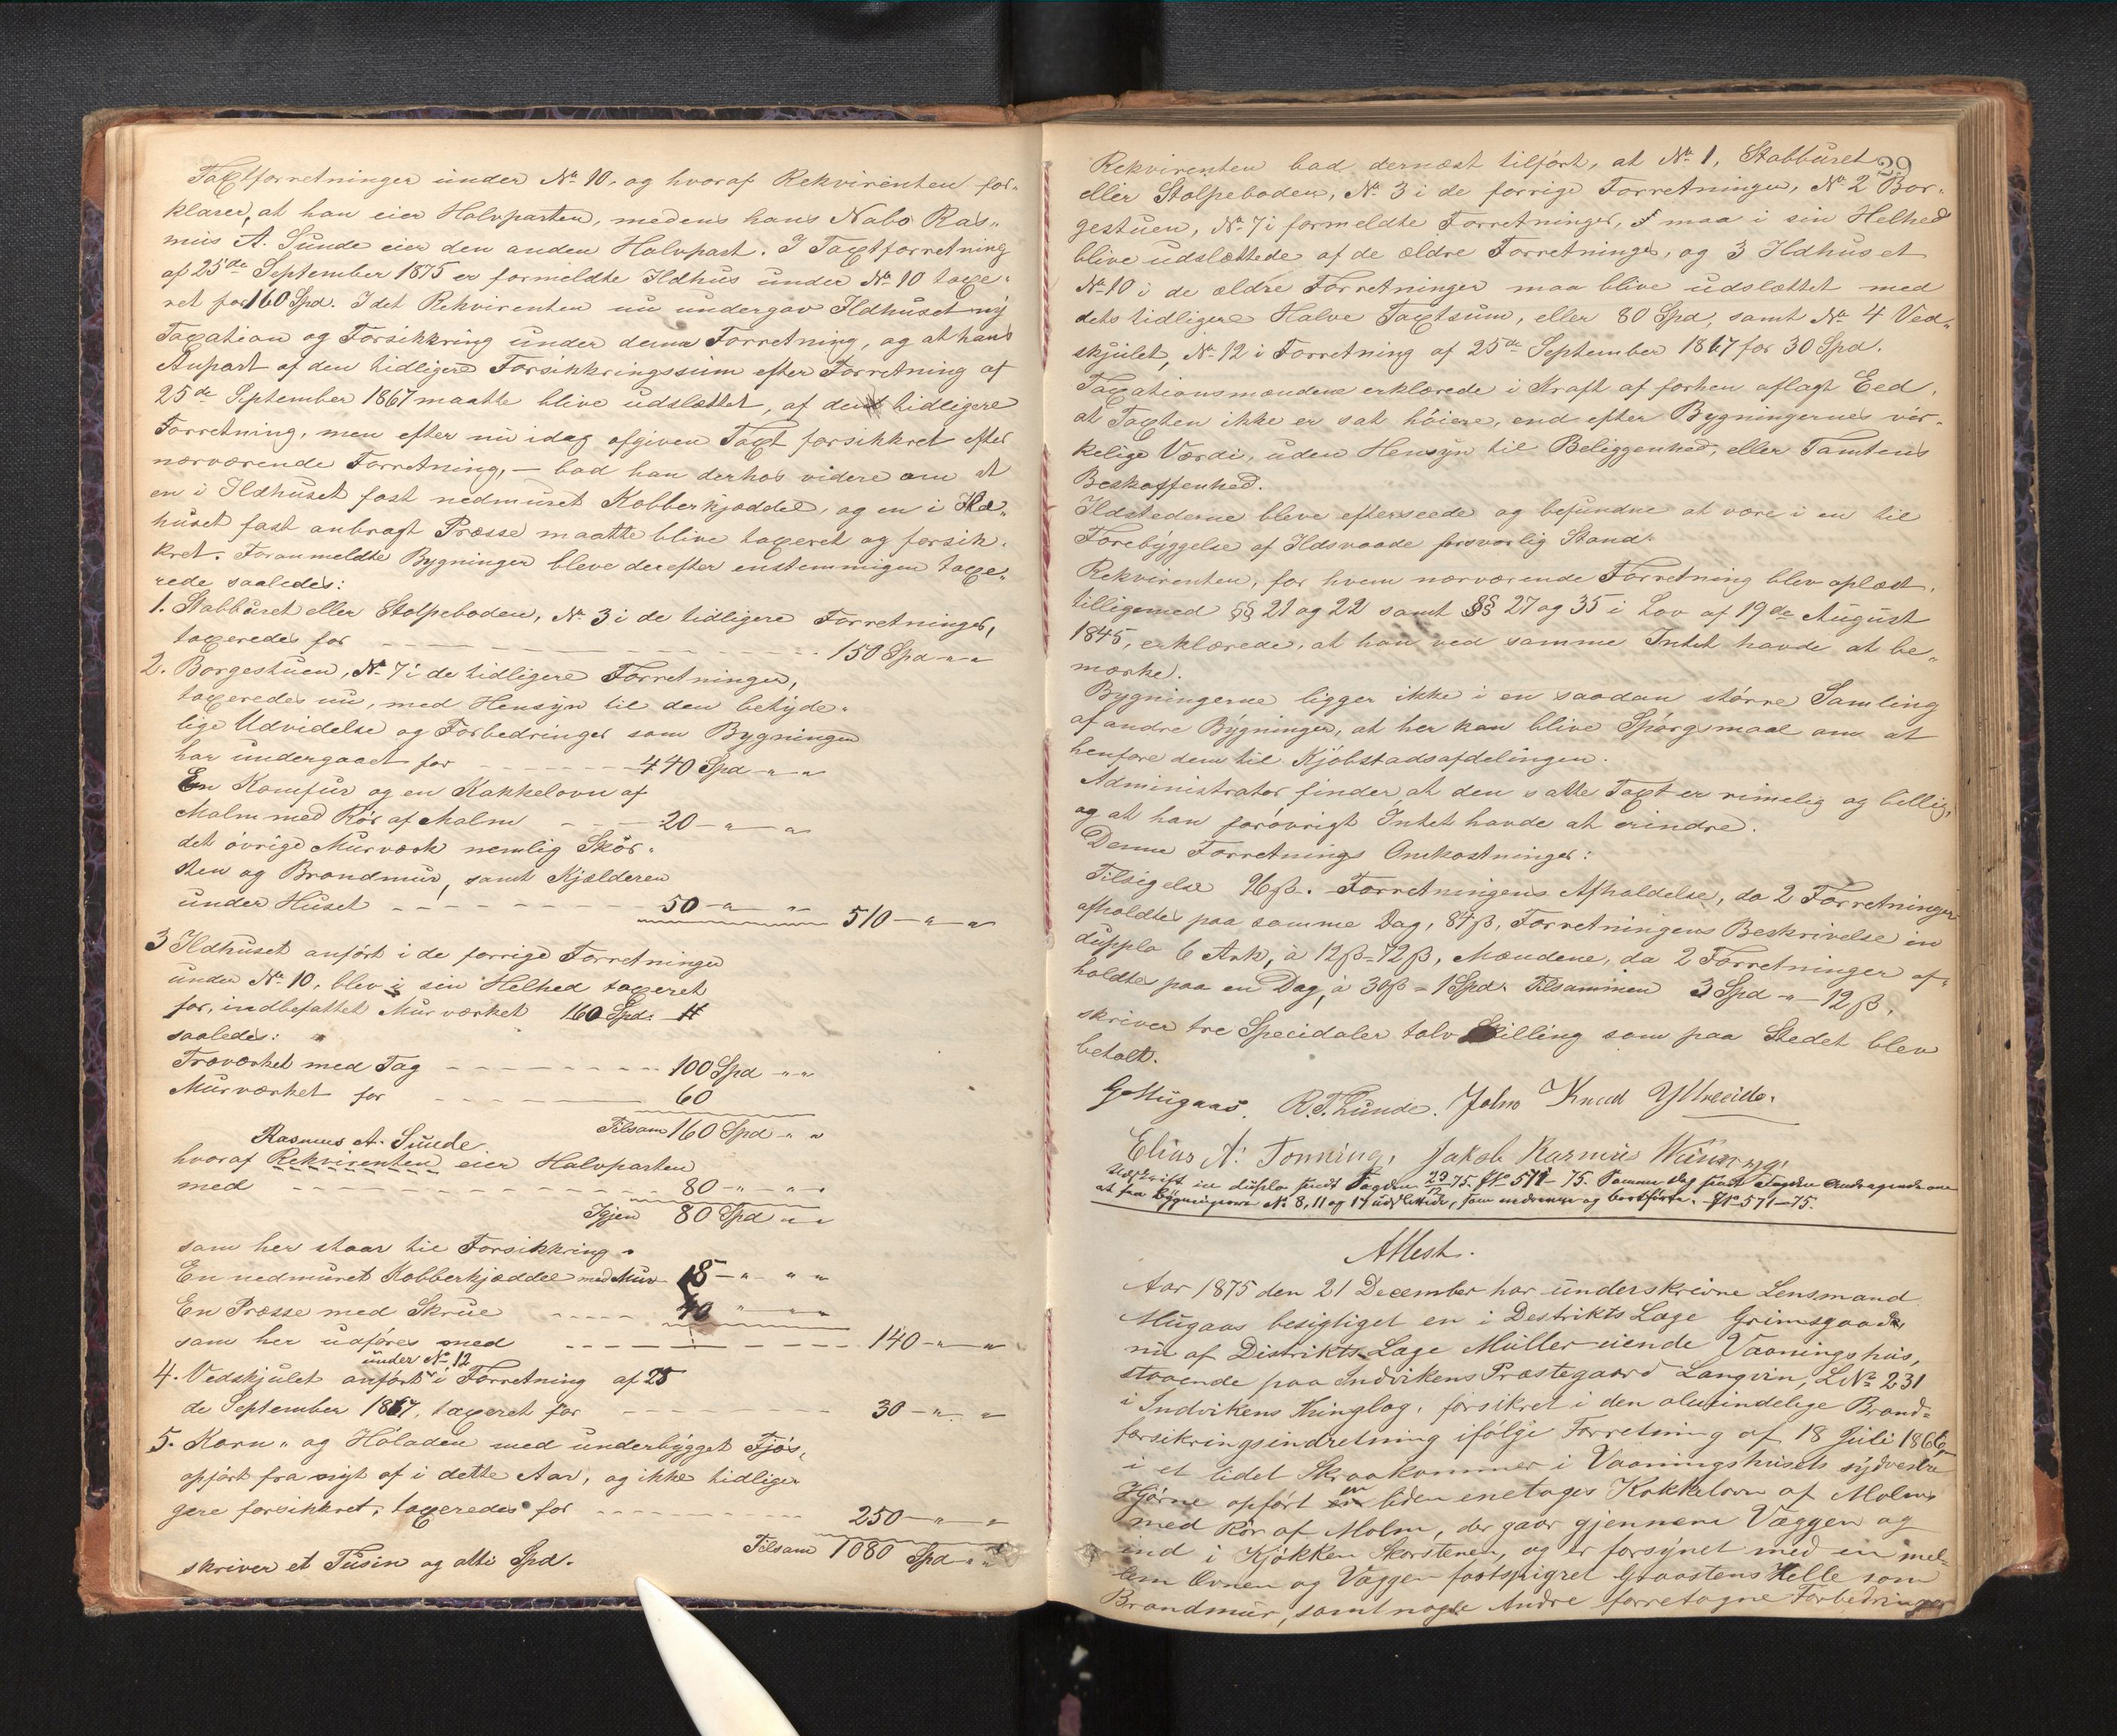 Taxtforretninger under No 10, og hvoraf Rekvirenten for-
klarer, at han eier Halvparten, medens hans Nabo Ras-
mus A. Sunde eier den anden Halvpart. I Taxtforretning
af 25de September 1875 er formeldte Ildhus under No 10 taxe-
ret for 160 Spd. Idet Rekvirenten nu undergav Ildhuset ny
Taxation og Forsikkring under denne Forretning, og at hans
Anpart af den tidligere Forsikkringssum efter Forretning af
25de September 1867 maatte blive udslættet, af den tidligere
Forretning, men efter nu idag afgiven Taxt forsikkret efter
nærværende Forretning, — bad han derhos videre om at
en i Ildhuset fast nedmuret Kobberkjæddel, og en i Ild-
huset fast anbragt Præsse maatte blive taxeret og forsik-
kret. Foranmeldte Bygninger bleve derefter enstemmigen taxe-
rede saaledes:
1. Stabburet eller Stolpeboden, No 3 i de tidligere Forretninger,
taxeredes for 150 Spd " "
2. Borgestuen, No 7 i de tidligere Forretninger,
taxeredes nu, med Hensyn til den betyde-
lige Udvidelse og Forbedringer som Bygningen
har undergaaet for 440 Spd " "
En Komfur og en Kakkelovn af
Malm med Rør af Malm 20 " "
det øvrige Murværk nemlig Skor-
sten og Brandmur, samt Kjælderen
under Huset 50 " " 510 " "
3 Ildhuset anført i de forrige Forretninger
under No 10, blev i sin Helhed taxeret
for, indbefattet Murværket 160 Spd.
saaledes:
Træværket med Tag 100 Spd " "
Murværket for 60
Tilsam 160 Spd " "
Rasmus A. Sunde
hvoraf Rekvirenten eier Halvparten
med 80 " "
Igjen 80 Spd " "
som her staar til Forsikkring.
En nedmuret Kobberkjæddel med Mur " "
En Præsse med Skrue 40 " "
som her udføres med 140 " "
under No 12
4. Vedskjulet anført i Forretning af 25
de September 1867, taxeret for 30 " "
5. Korn- og Høladen med underbygget Fjøs,
opført fra nyt af i dette Aar, og ikke tidlige-
gere forsikkret, taxeredes for 250 " "
Tilsam 1080 Spd " "
skriver et Tusin og otti Spd.
29
Rekvirenten bad dernæst tilført, at No 1, Stabburet
eller Stolpeboden, No 3 i de forrige Forretninger, No 2 Bor-
gestuen, No 7 i formeldte Forretninger, maa i sin Helhed
blive udslættede af de ældre Forretninger, og 3 Ildhuset
No 10 i de ældre Forretninger maa blive udslættet med
dets tidligere Halve Taxtsum, eller 80 Spd, samt No 4 Ved-
skjulet, No 12 i Forretning af 25de September 1867 for 30 Spd.
Taxationsmændene erklærede i Kraft af forhen aflagt Eed,
at Taxten ikke er sat høiere, end efter Bygningernes vir-
kelige Værdi, uden Hensyn til Beliggenhed, eller Tomtens
Beskaffenhed.
Ildstederne bleve efterseede og befundne at være i en til
Forebyggelse af Ildsvaade forsvarlig Stand.
Rekvirenten, for hvem nærværende Forretning blev oplæst,
tilligemed §§ 21 og 22 samt §§ 27 og 35 i Lov af 19de August
1845, erklærede, at han ved samme Intet havde at be-
mærke.
Bygningerne ligger ikke i en saadan større Samling
af andre Bygninger, at her kan blive Spørgsmaal om at
henføre dem til Kjøbstadsafdelingen.
Administrator finder at den satte Taxt er rimelig og billig,
og at han forøvrigt Intet havde at erindre.
Denne Forretnings Omkostninger:
Tilsigelse 96 ß. Forretningens Afholdelse, da 2 Forretninger
afholdtes paa samme Dag, 84 ß, Forretningens Beskrivelse in
dupplo 6 Ark, à 12 ß = 72 ß, Mændene, da 2 Forretninger af-
holdtes paa en Dag, à 30 ß = 1 Spd. Tilsammen 3 Spd " 12 ß,
skriver tre Specidaler tolv Skilling som paa Stedet blev
betalt.
G Mugaas. R. T. Lunde. John Knud Yttreeide.
Elias A. Tonning, Jakob Rasmus
Udskrift in duplo sendt Fogden 75. No 571 – 75. Samme Dag
at faa Bygningerne No 8, 11 og 14 udslettede, som nedrevne og bortførte. No 571 – 75.
Attest.
Aar 1875 den 21 December har underskrivne Lensmand
Mugaas besigtiget en i Destrikts Læge Grimsgaards
nu af Distrikts Læge Müller eiende Vaaningshus,
staaende paa Indvikens Præstegaard Langvin, LNo 231
i Indvikens Thinglag, forsikret i den almindelige Brand-
forsikringsindretning ifølge Forretning af 18 Juli 1866
i et lidet Skraakammer i Vaaningshusets sydvestre
Hjørne opført en liden enetages Kakkelovn af Malm
med Rør af Malm, der gaar gjennem Væggen og
ind i Kjøkken Skorstenen, og er forsynet med en mel-
lem Ovnen og Væggen fastspigret Graastens Helle som
Brandmur, samt nogle Andre foretagne Forbedringer